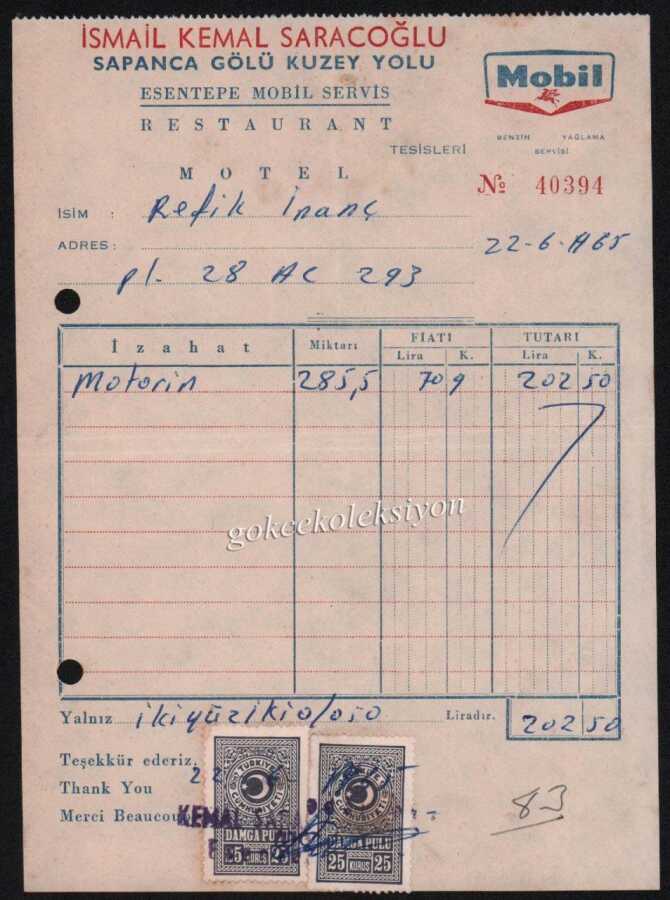 İSMAİL KEMAL SARACOĞLU
SAPANCA GÖLÜ KUZEY YOLU
ESENTEPE MOBİL SERVİS
RESTAURANT
TESİSLERİ
MOTEL
Mobil
BENZİN YAĞLAMA
SERVİSİ
№ 40394
İSİM : Refik İnanç
ADRES :
22-6-1965
pl. 28 AC 293
İzahat Miktarı FİATI TUTARI
Lira K. Lira K.
Motorin 285,5 70 9 202 50
gokcekoleksiyon
Yalnız ikiyüziki o/o50 Liradır. 202 50
Teşekkür ederiz.
Thank You
Merci Beaucoup
22 6
TÜRKİYE CUMHURİYETİ
DAMGA PULU
25 KURUŞ
DAMGA PULU
25 KURUŞ 25
KEMAL
83